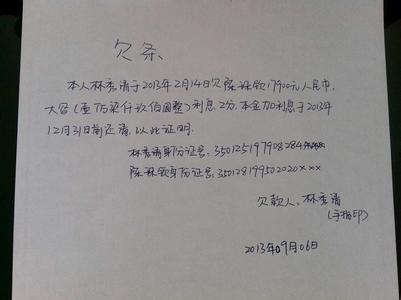 欠条
本人林秀清于2013年2月14日欠陈珠钦17900元人民币,
大写(壹万柒仟玖佰圆整)利息2分,本金加利息于2013年
12月31日前还清,以此证明.
林秀清身份证号:350125197908284
陈珠钦身份证号:350128199502020×××
欠款人:林秀清
(手指印)
2013年09月06日